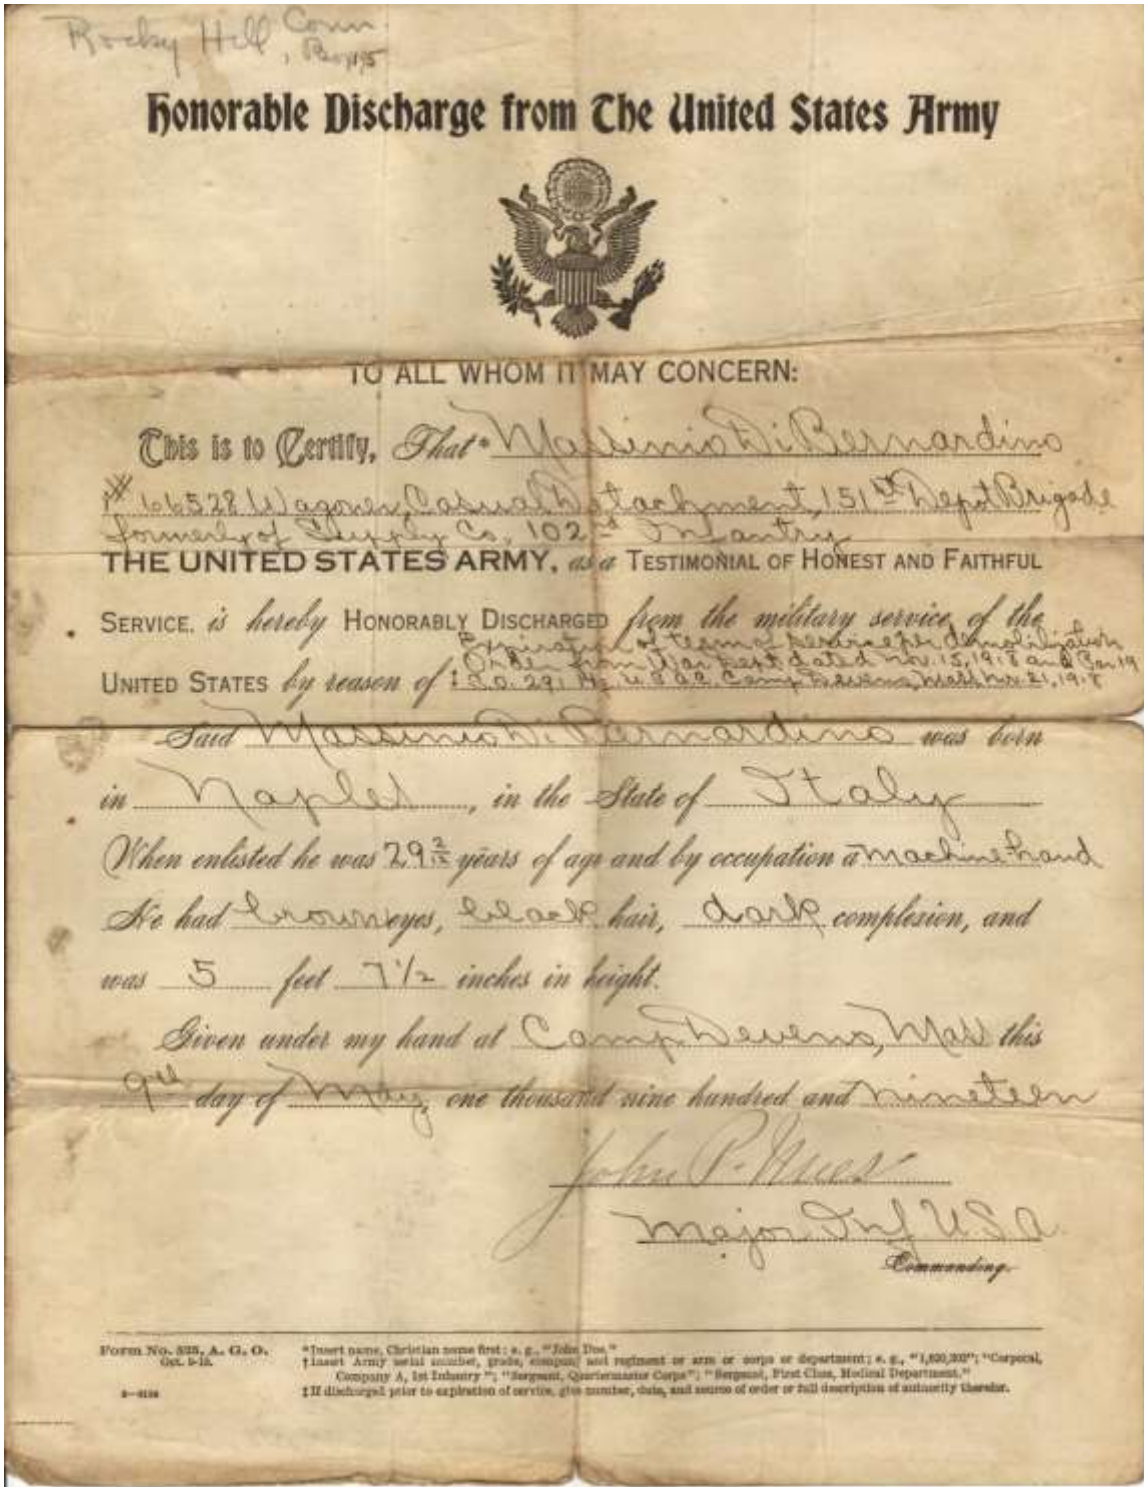 Rocky Hill, Conn.
Box 15
Honorable Discharge from The United States Army
TO ALL WHOM IT MAY CONCERN:
This is to Certify, That* Massinio Di Bernardino
†# 66528 Wagoner, Casual Detachment, 151st Depot Brigade
formerly of Supply Co., 102nd Infantry
THE UNITED STATES ARMY, as a TESTIMONIAL OF HONEST AND FAITHFUL
SERVICE, is hereby HONORABLY DISCHARGED from the military service of the
expiration of term of service per demobilization
Order from War Dept dated Nov. 15, 1918 and Par 19
UNITED STATES by reason of ‡ S.O. 291 Camp Devens, Mass Nov. 21, 1918
Said Massinio Di Bernardino was born
in Naples, in the State of Italy
When enlisted he was 29 2/12 years of age and by occupation a machine hand
He had brown eyes, black hair, dark complexion, and
was 5 feet 7 1/2 inches in height.
Given under my hand at Camp Devens, Mass this
9th day of May, one thousand nine hundred and nineteen
John P.
Major Inf U.S.A.
Commanding.
Form No. 525, A. G. O.
Oct. 9-18.
*Insert name, Christian name first: e. g., "John Doe."
†Insert Army serial number, grade, company and regiment or arm or corps or department; e. g., "1,620,302"; "Corporal,
Company A, 1st Infantry"; "Sergeant, Quartermaster Corps"; "Sergeant, First Class, Medical Department."
‡If discharged prior to expiration of service, give number, date, and source of order or full description of authority therefor.